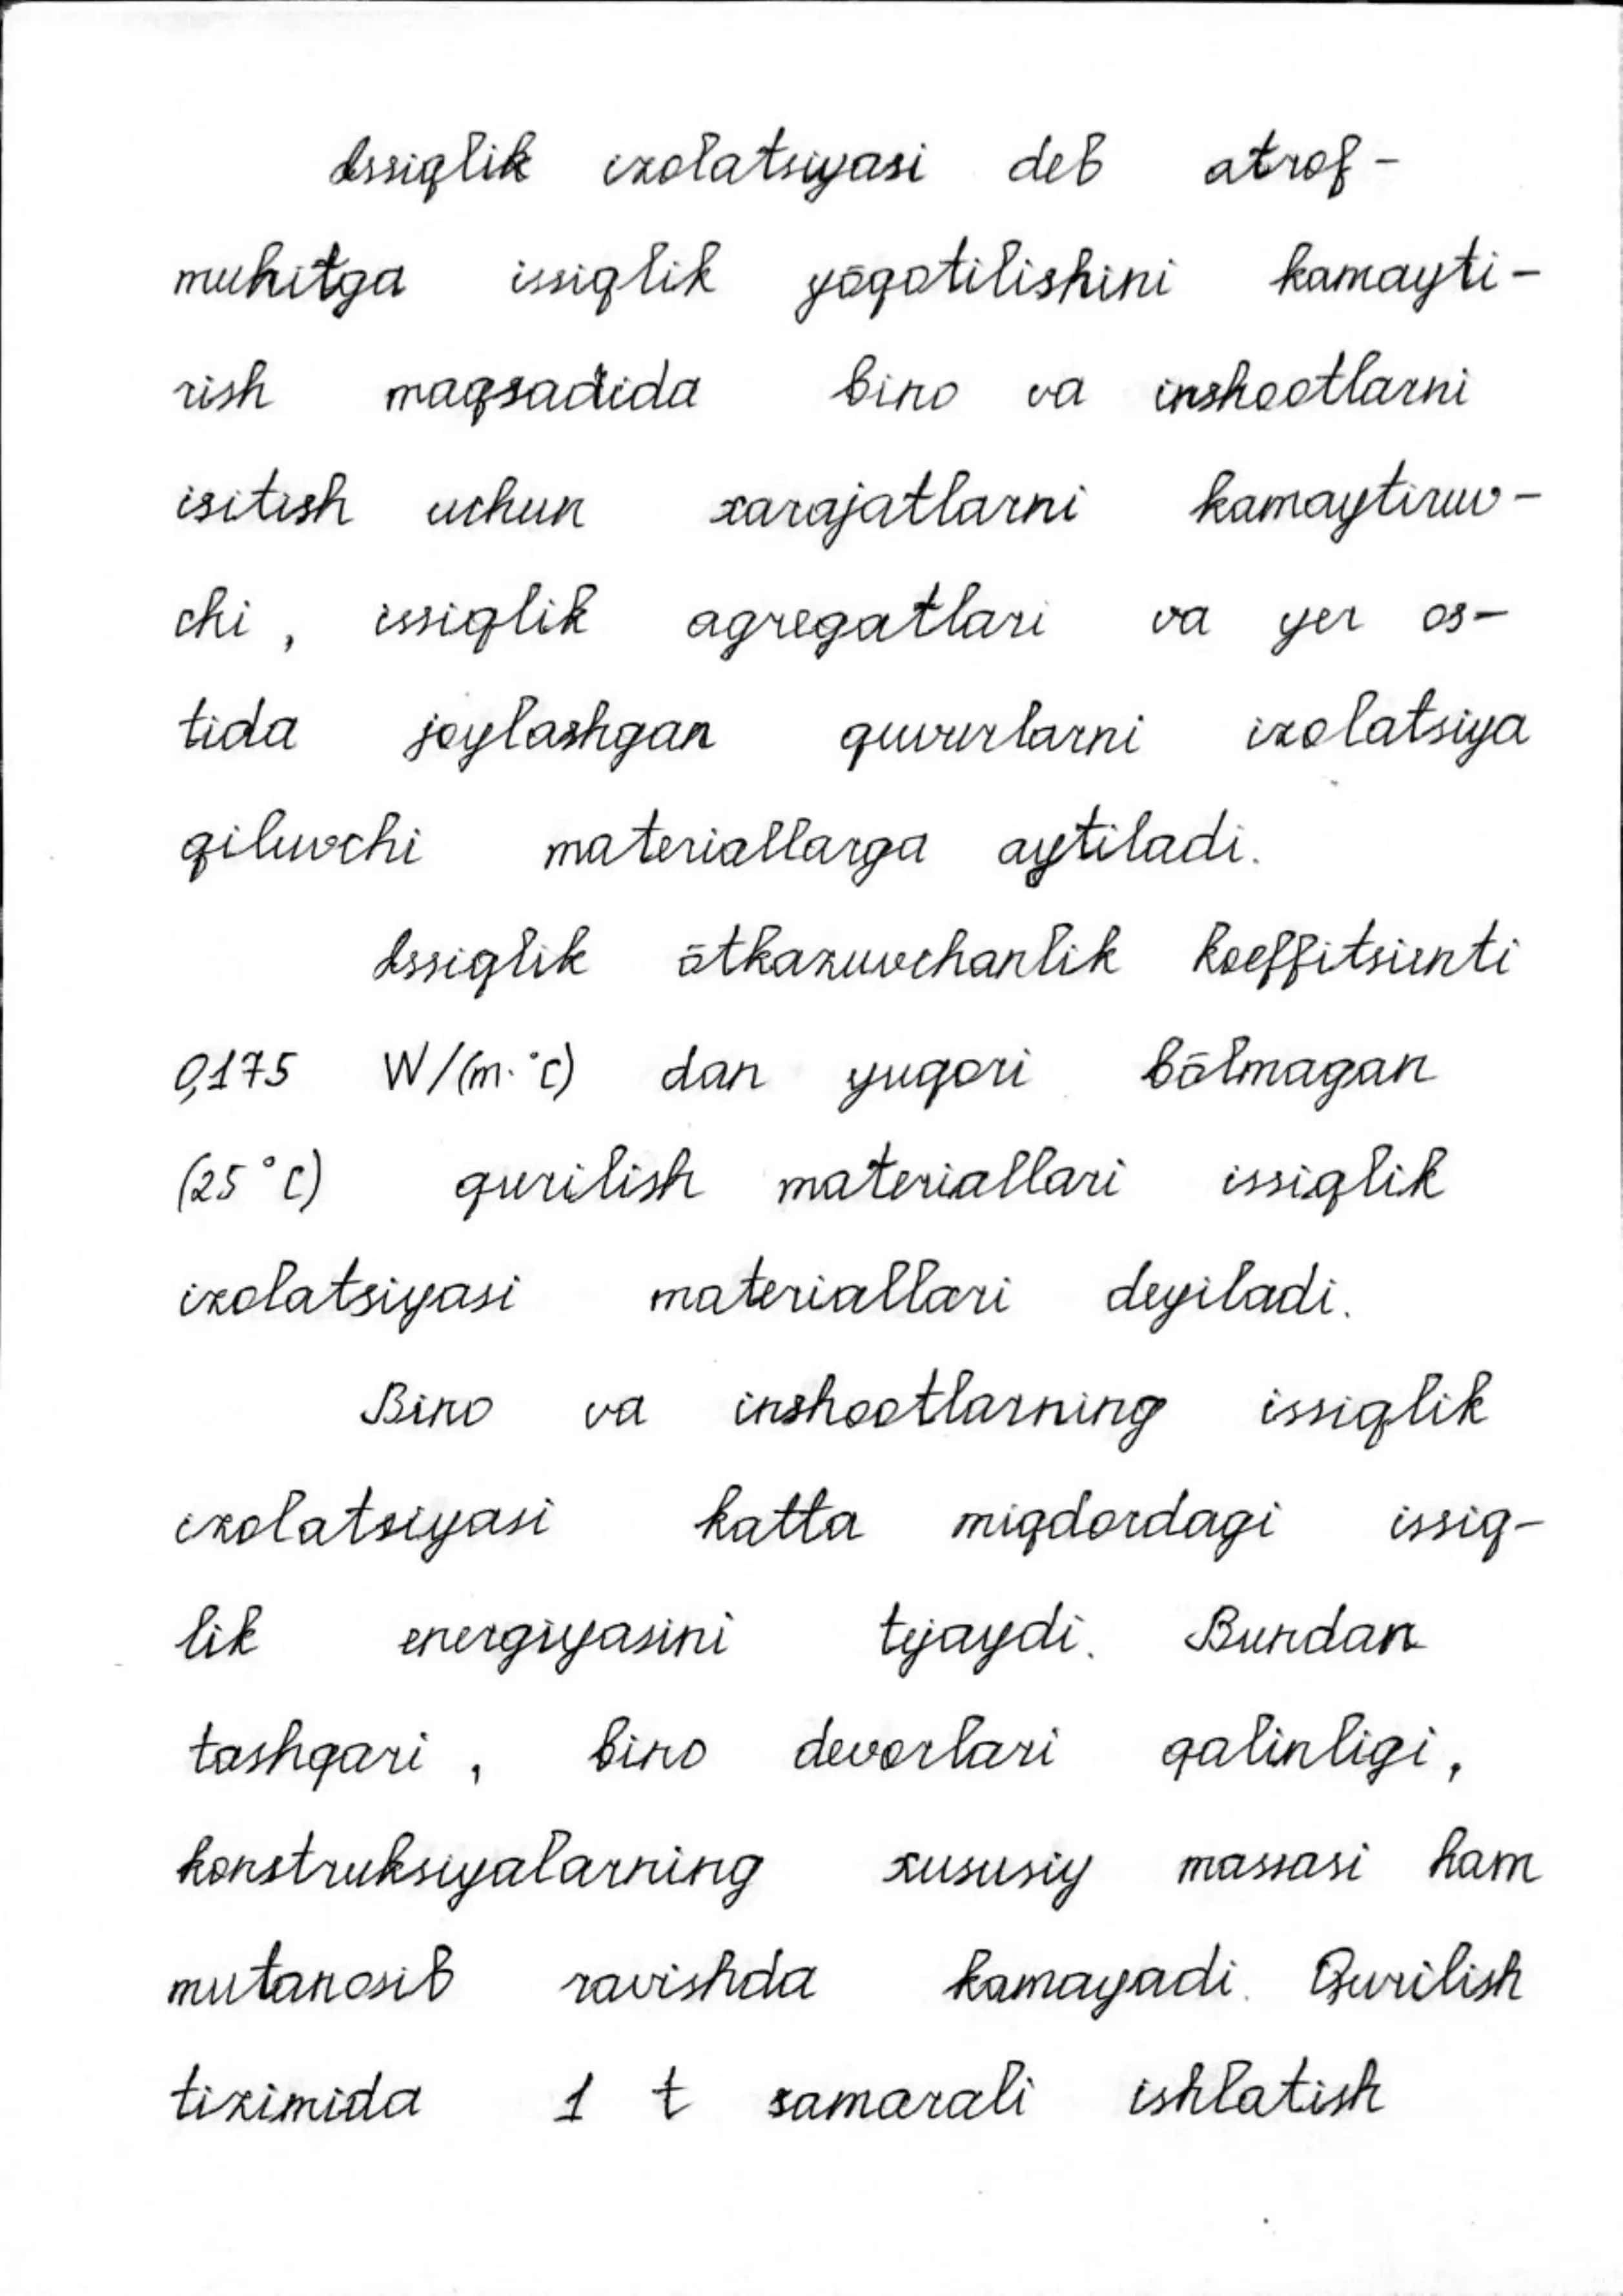 Issiqlik izolatsiyasi deb atrof-
muhitga issiqlik yōqotilishini kamayti-
rish maqsadida bino va inshootlarni
isitish uchun xarajatlarni kamaytiruv-
chi, issiqlik agregatlari va yer os-
tida joylashgan quvurlarni izolatsiya
qiluvchi materiallarga aytiladi.
Issiqlik ōtkazuvchanlik koeffitsienti
0,175 W/(m·°C) dan yuqori bōlmagan
(25°C) qurilish materiallari issiqlik
izolatsiyasi materiallari deyiladi.
Bino va inshootlarning issiqlik
izolatsiyasi katta miqdordagi issiq-
lik energiyasini tejaydi. Bundan
tashqari, bino devorlari qalinligi,
konstruksiyalarning xususiy massasi ham
mutanosib ravishda kamayadi. Qurilish
tizimida 1 t samarali ishlatish